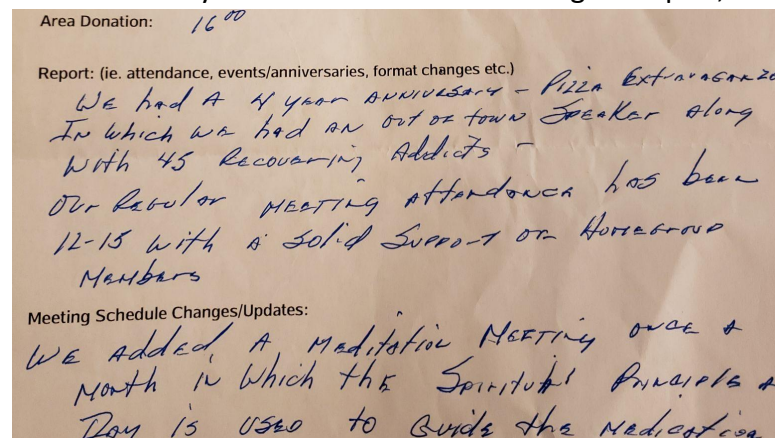 Area Donation: 16 00
Report: (ie. attendance, events/anniversaries, format changes etc.)
We had A 4 year ANNIVERSARY - Pizza Extravaganza
In which we had an out of town Speaker Along
With 45 Recovering Addicts -
Our Regular Meeting Attendance has been
12-15 with a solid Support of Homegroup
Members
Meeting Schedule Changes/Updates:
We Added A Meditation Meeting once A
Month in Which the Spiritual Principle A
Day is used to Guide the